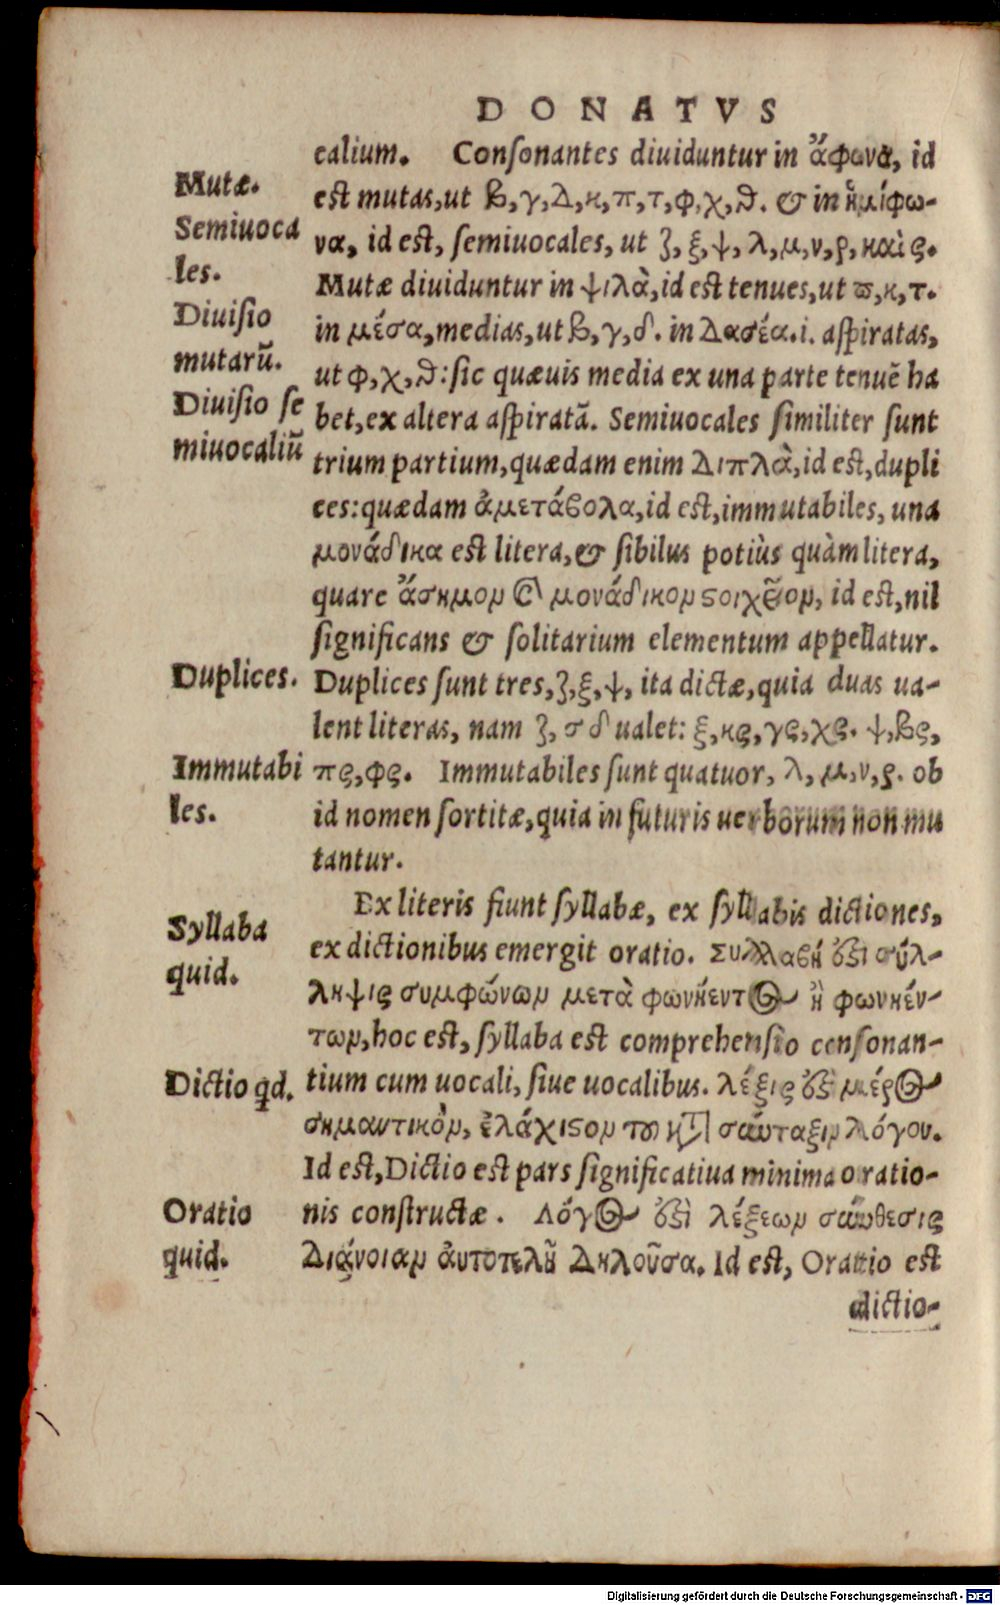 DONATVS
calium. Consonantes diuiduntur in ἄφωνα, id
Mutæ.
est mutas,ut β,γ,Δ,κ,π,τ,φ,χ,ϑ. & in ἡμίφω-
Semiuoca
να, id est, semiuocales, ut ζ, ξ, ψ, λ, μ, ν, ρ, καὶ ς.
les.
Mutæ diuiduntur in ψιλὰ, id est tenues, ut ϖ, κ, τ.
Diuisio
in μέσα, medias, ut β, γ, δ. in Δασέα.i. aspiratas,
mutarũ.
ut φ, χ, ϑ: sic quæuis media ex una parte tenuẽ ha
Diuisio se
bet, ex altera aspiratã. Semiuocales similiter sunt
miuocaliũ
trium partium, quædam enim Διπλὰ, id est, dupli
ces: quædam ἀμετάβολα, id est, immutabiles, una
μονάδικα est litera, & sibilus potiùs quàm litera,
quare ἄσημον καὶ μονάδικον ϛοιχεῖον, id est, nil
significans & solitarium elementum appellatur.
Duplices.
Duplices sunt tres, ζ, ξ, ψ, ita dictæ, quia duas ua-
lent literas, nam ζ, σδ ualet: ξ, κς, γς, χς. ψ, βς,
Immutabi
πς, φς. Immutabiles sunt quatuor, λ, μ, ν, ρ. ob
les.
id nomen sortitæ, quia in futuris uerborum non mu
tantur.
Ex literis fiunt syllabæ, ex syllabis dictiones,
Syllaba
ex dictionibus emergit oratio. Συλλαβή ὅξι σύλ-
quid.
ληψις συμφώνων μετὰ φωνήεντος ἢ φωνηέν-
των, hoc est, syllaba est comprehensio consonan-
Dictio qd.
tium cum uocali, siue uocalibus. λέξις ὅξι μέρος
σημαντικὸν, ἐλάχιϛον τοῦ κατὰ σύνταξιν λόγου.
Id est, Dictio est pars significatiua minima oratio-
Oratio
nis constructæ. Λόγος ὅξι λέξεων σύνθεσις
quid.
Διάνοιαν αὐτοτελῆ Δηλοῦσα. Id est, Oratio est
dictio-
Digitalisierung gefördert durch die Deutsche Forschungsgemeinschaft - DFG